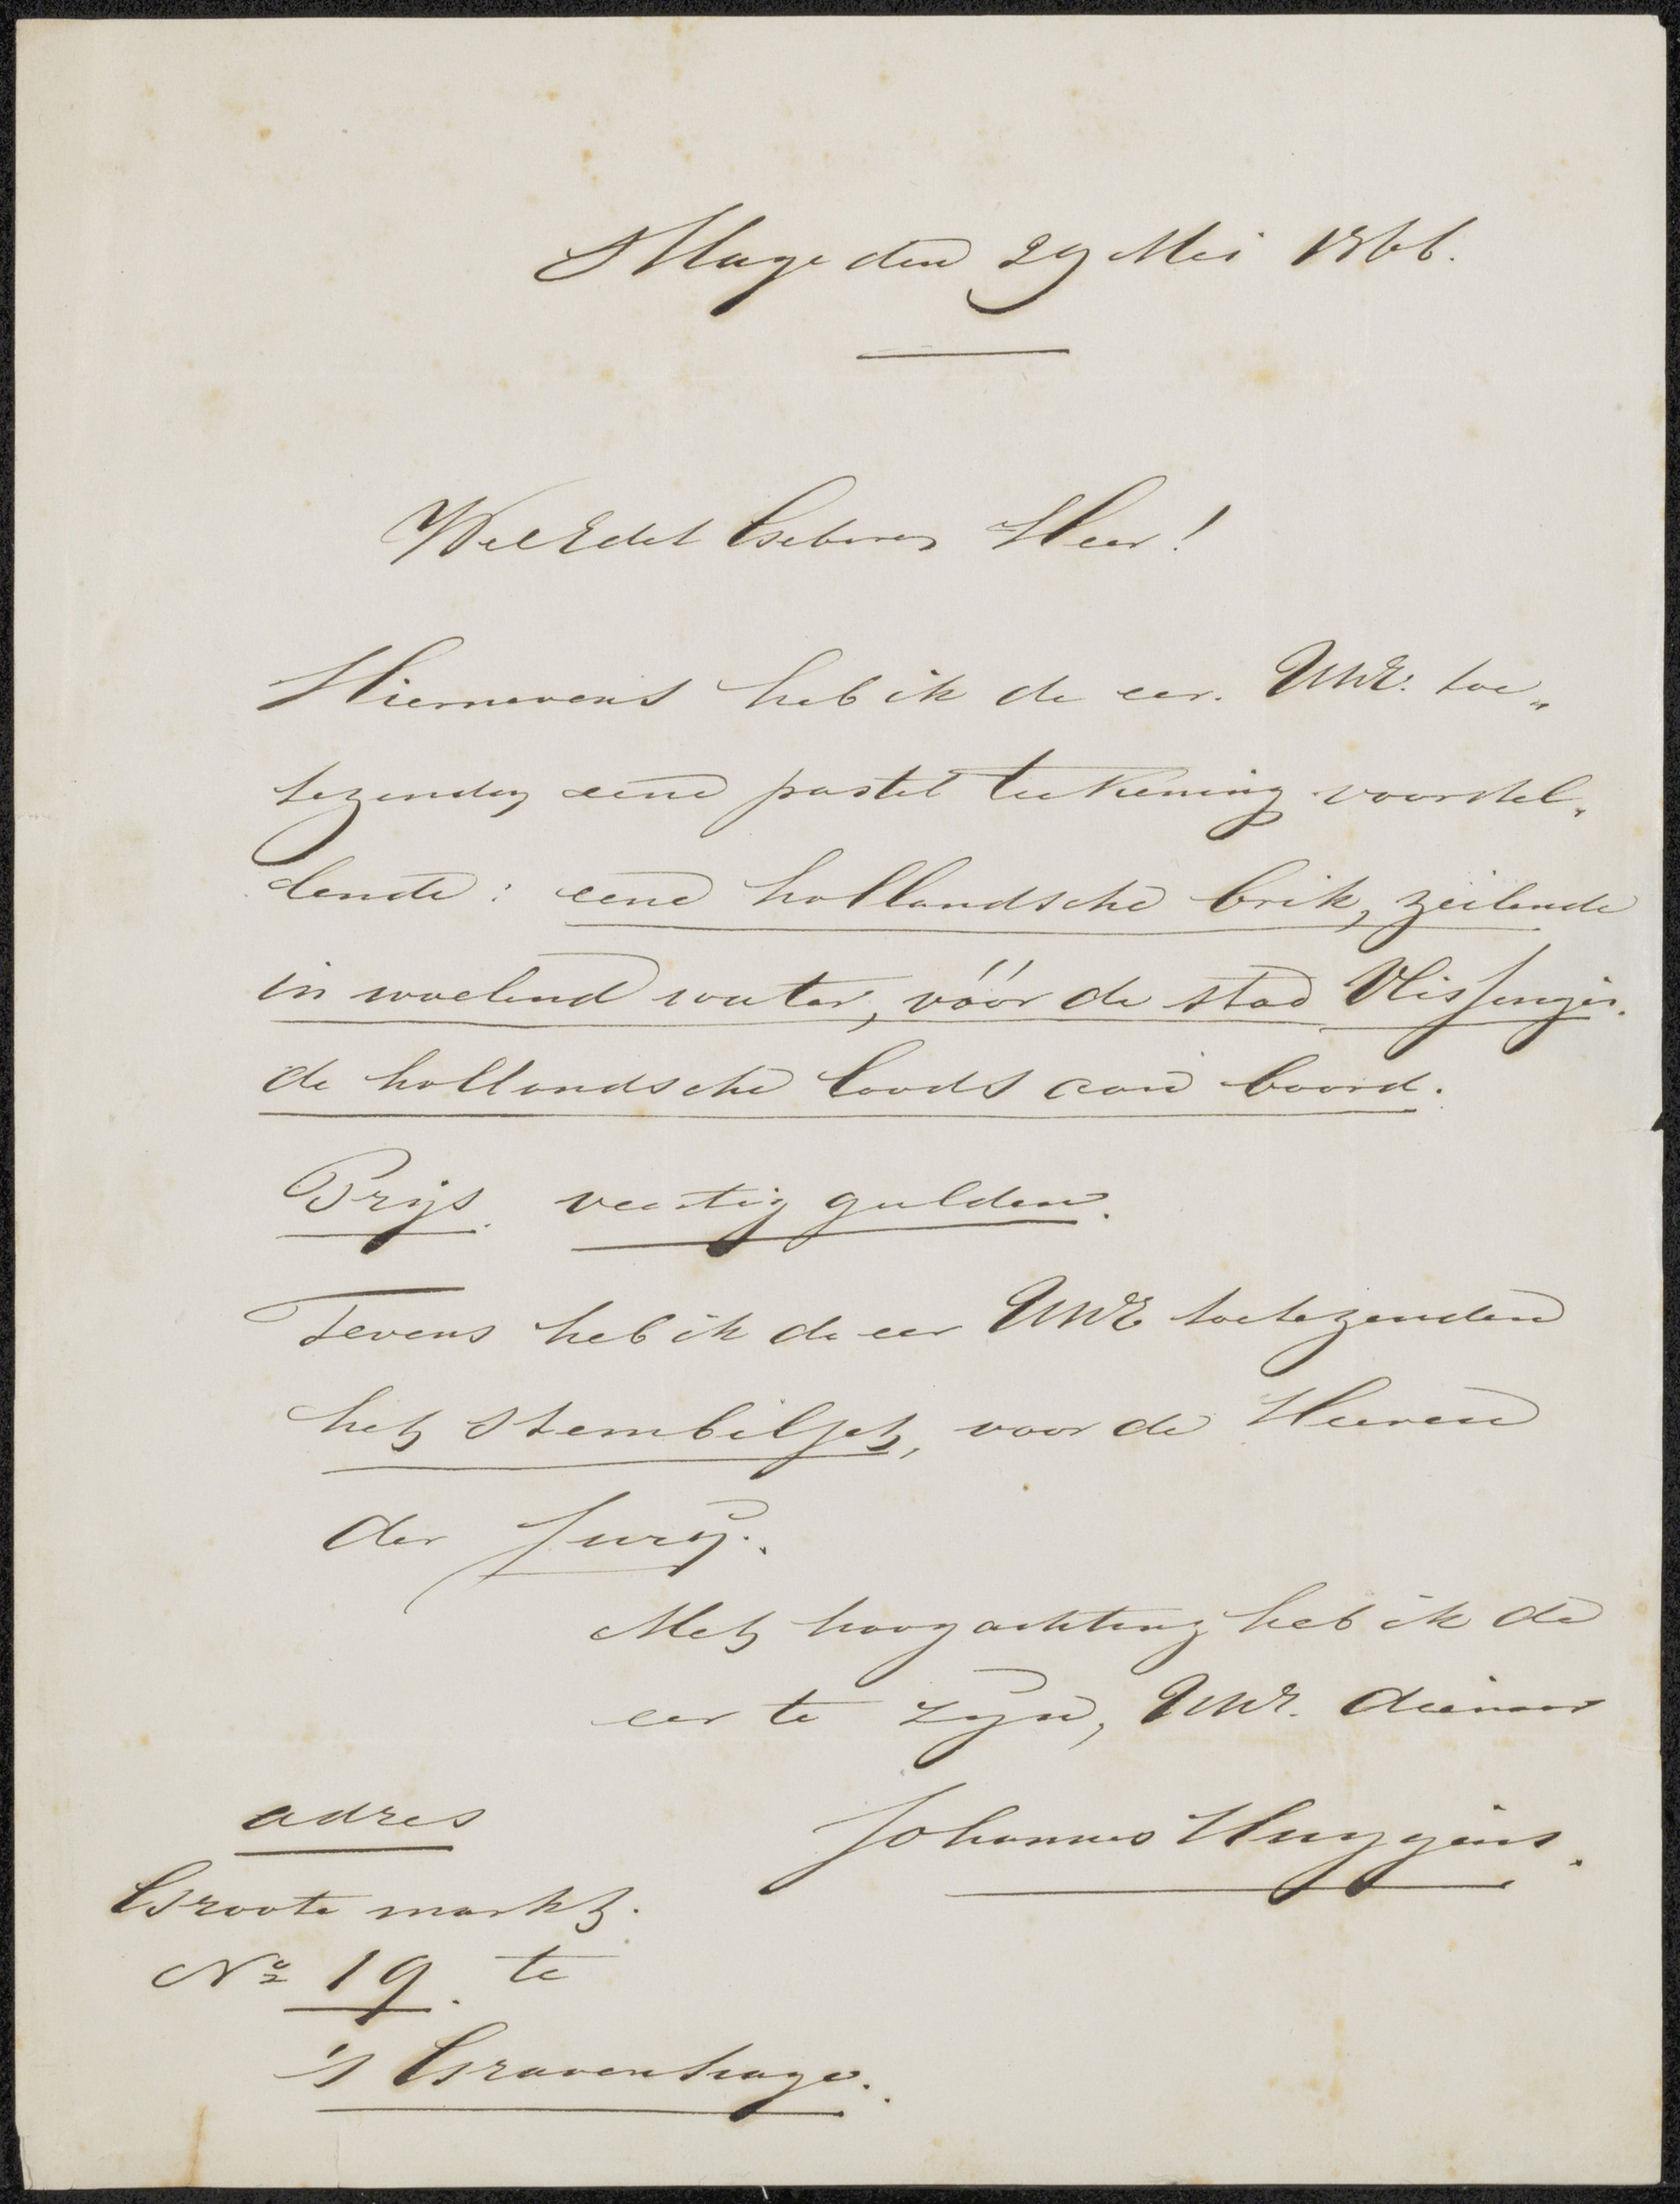 S Hage den 29 Mei 1866.
WelEdel Geboren Heer!
Hiernevens heb ik de eer. UWE. toe„
tezenden eene pastel teekening voorstel„
lende: eene hollandsche brik, zeilende
in woelend water, vóór de stad Vlissingen.
de hollandsche loods aan boord.
Prijs. veertig gulden.
Tevens heb ik de eer UWE toetezenden
het stembiljet, voor de Heeren
der Jurij.
Met hoogachting heb ik de
eer te zijn, UWE. dienaar
Johannes Huygens.
adres
Groote markt.
No 19. te
's Gravenhage.